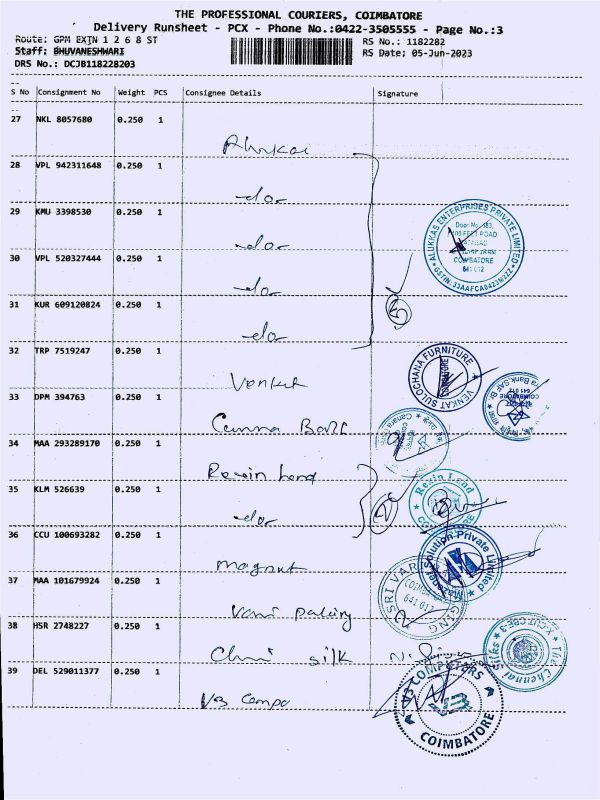 THE PROFESSIONAL COURIERS, COIMBATORE
Delivery Runsheet - PCX - Phone No.:0422-3505555 - Page No.:3
Route: GPM EXTN 1 2 6 8 ST RS No.: 1182282
Staff: BHUVANESHWARI RS Date: 05-Jun-2023
DRS No.: DCJB118228203
S No Consignment No Weight PCS Consignee Details Signature
27 NKL 8057680 0.250 1
28 VPL 942311648 0.250 1
do
29 KMU 3398530 0.250 1
do
30 VPL 520327444 0.250 1
do
31 KUR 609120824 0.250 1
do
32 TRP 7519247 0.250 1
Venkat
33 DPM 394763 0.250 1
34 MAA 293289170 0.250 1
Rexin Land
35 KLM 526639 0.250 1
do
36 CCU 100693282 0.250 1
37 MAA 101679924 0.250 1
38 HSR 2748227 0.250 1
silk
39 DEL 529011377 0.250 1
V3 Compu
ALUKKAS ENTERPRISES PRIVATE LIMITED
Door No. 483,
COIMBATORE
641 012
VENKAT SULOCHANA FURNITURE
COIMBATORE
Canara Bank
Rexin Land
Solution Private Limited
SRI VARI
641 012
The Chennai Silks
V3 COMPUTERS
V3
COIMBATORE